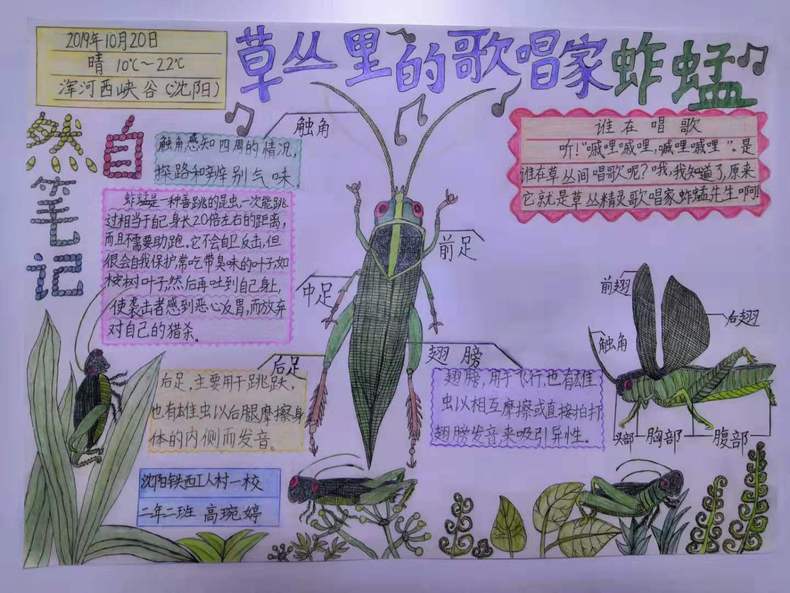 2019年10月20日
晴 10℃~22℃
浑河西峡谷(沈阳)
草丛里的歌唱家蚱蜢
自然
笔记
触角感知四周的情况,
探路和辨别气味.
触角
谁在唱歌
听!"嘁哩嘁哩,嘁哩嘁哩".是
谁在草丛间唱歌呢?哦,我知道了,原来
它就是草丛精灵歌唱家蚱蜢先生啊!
蚱蜢是一种喜跳的昆虫,一次能跳
过相当于自己身长20倍左右的距离,
而且不需要助跑.它不会自卫反击,但
很会自我保护常吃带臭味的叶子如
桉树叶子,然后再吐到自己身上,
使袭击者感到恶心反胃,而放弃
对自己的猎杀.
前足
中足
后足
翅膀
前翅
后翅
触角
头部
胸部
腹部
后足,主要用于跳跃.
也有雄虫以后腿摩擦身
体的内侧而发音.
翅膀,用于飞行,也有雄
虫以相互摩擦或直接拍打
翅膀发音来吸引异性.
沈阳铁西工人村一校
二年二班 高琬婷